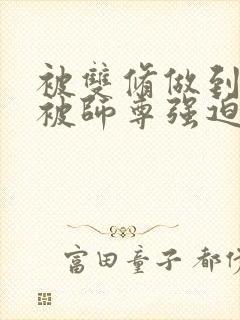 被雙脩做到
被師尊强迫
富田童子 都